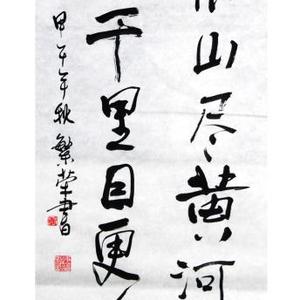 山尽黄河
千里目更
甲午年秋繁荣书